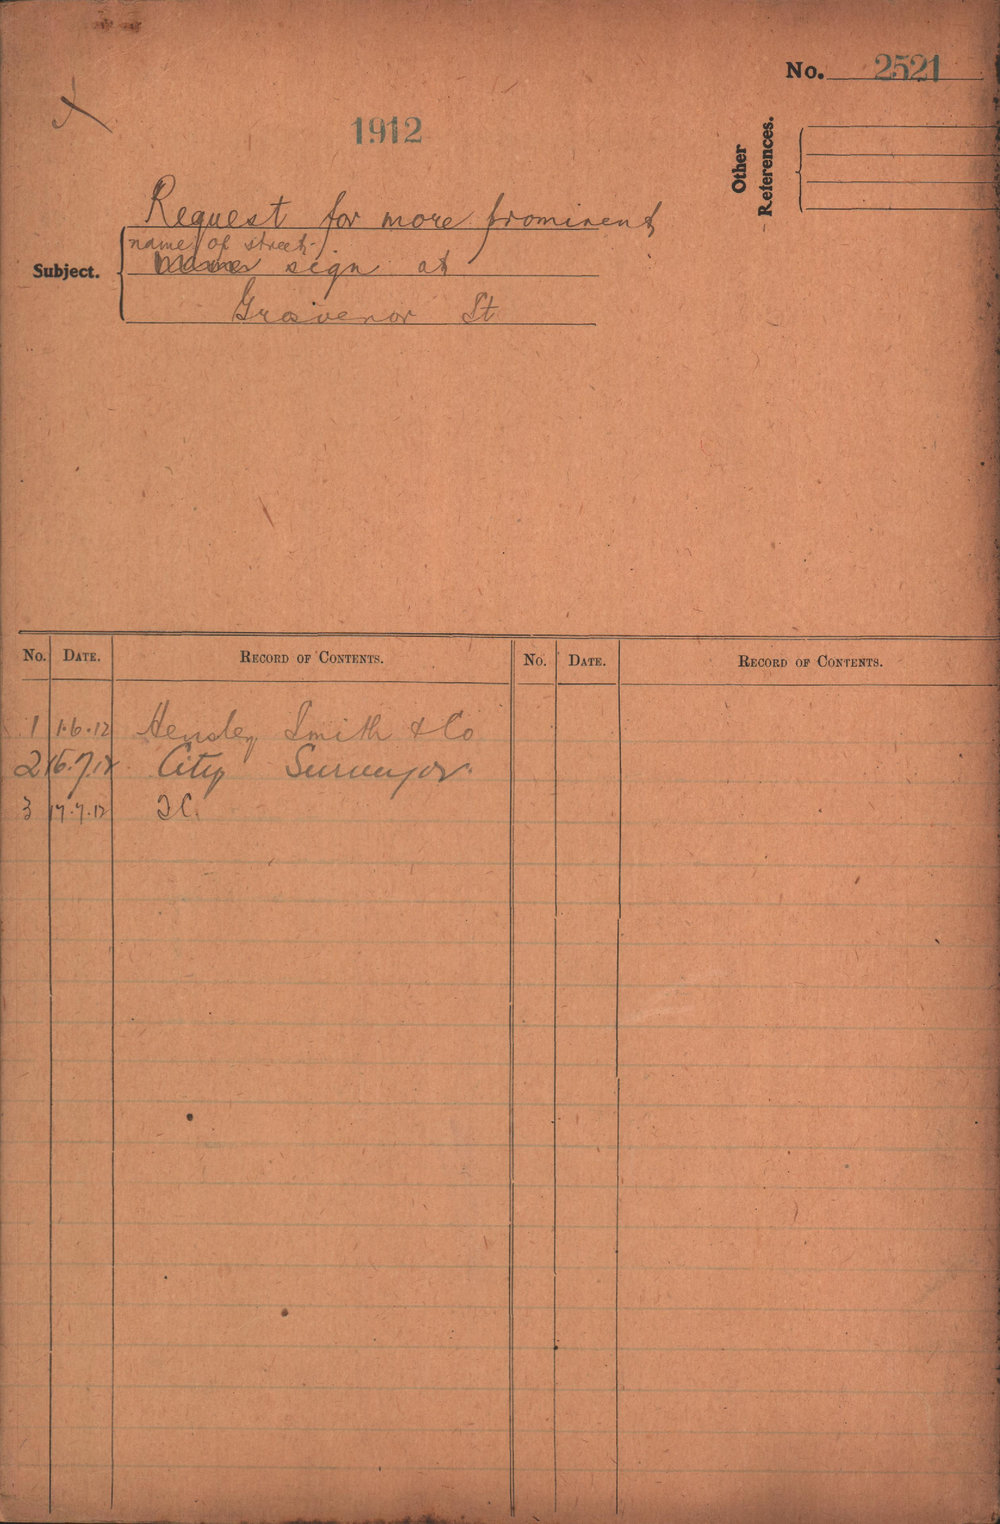 No. 2521
1912
Other
References.
Request for more prominent
name of street
Subject.
sign at
Grosvenor St
No. DATE. RECORD OF CONTENTS. No. DATE. RECORD OF CONTENTS.
1 1.6.12 Hensley Smith & Co
2 16.7.12 City Surveyor.
3 17.7.12